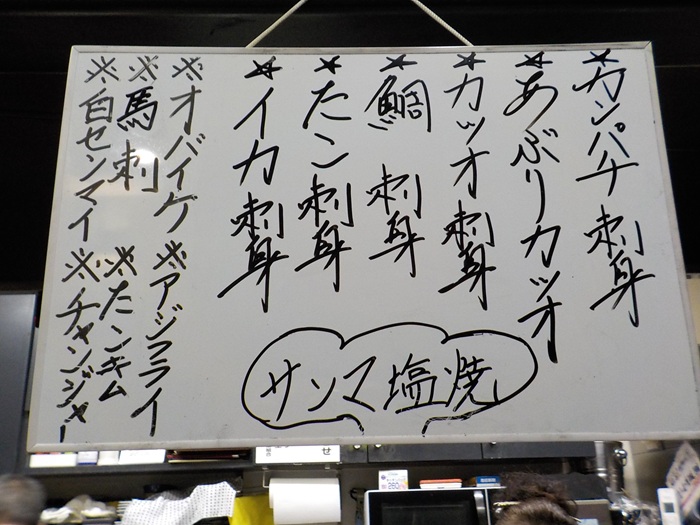 ☆カンパチ刺身
☆あぶりカツオ
☆カツオ刺身
☆鯛刺身
☆たこ刺身
☆イカ刺身
※オバイケ
※アジフライ
※馬刺
※たこキム
※白センマイ
※チャンジャー
サンマ塩焼